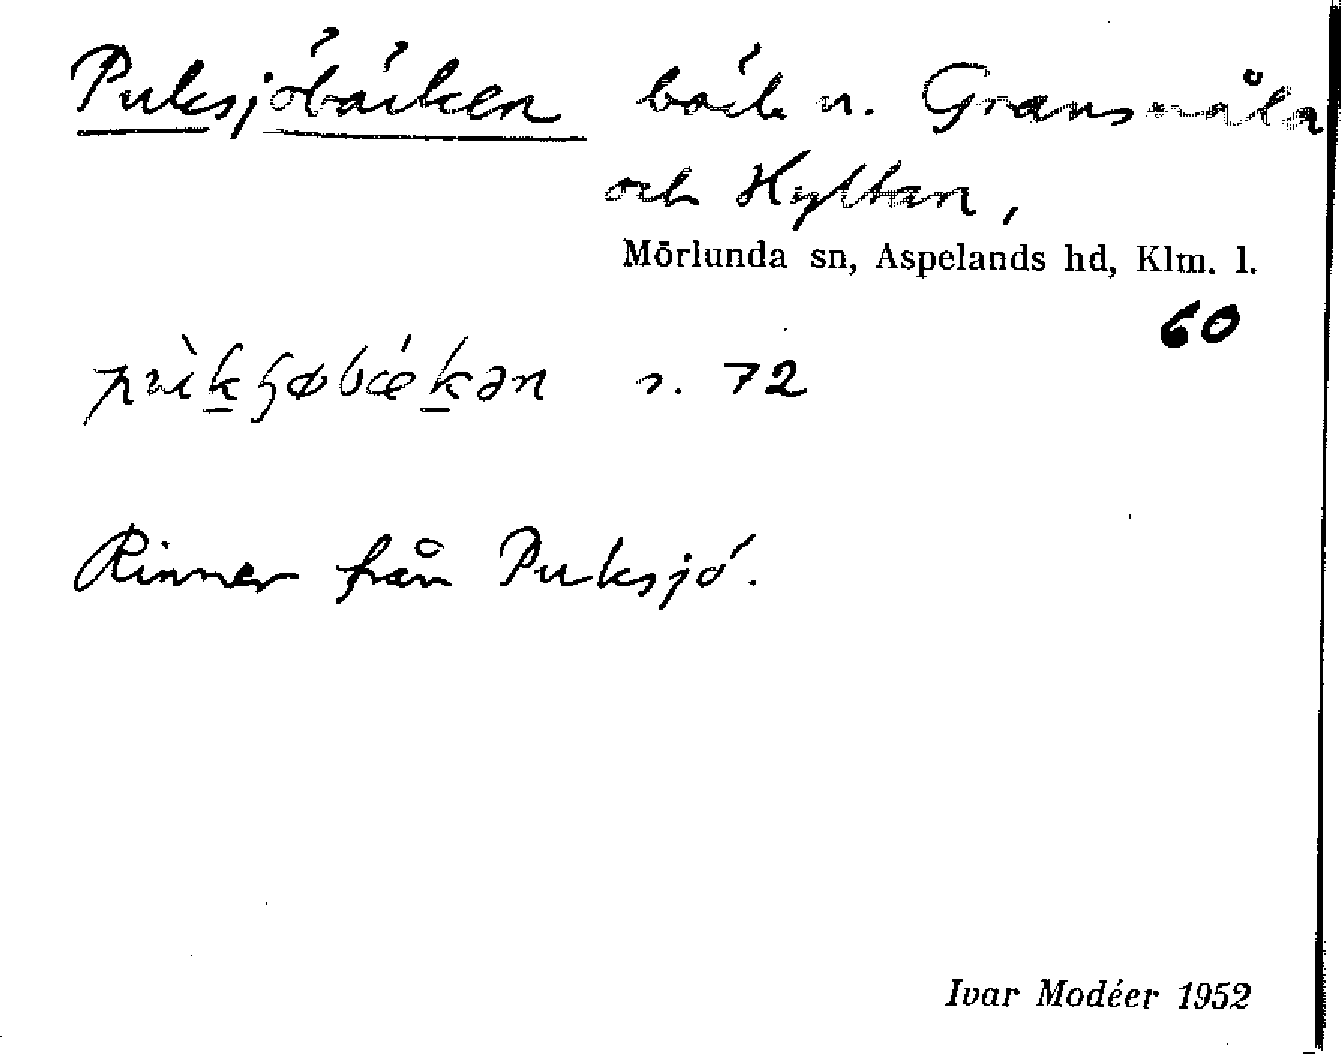 Puksjöbäcken bäck n. Gransmåla
och Hyltan,
Mörlunda sn, Aspelands hd, Klm. l.
60
s. 72
Rinner från Puksjö.
Ivar Modéer 1952